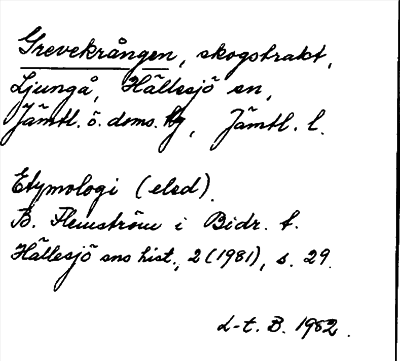 Grevekrången, skogstrakt,
Ljungå, Hällesjö sn,
Jämtl. ö. doms. hg, Jämtl. l.
Etymologi (eled).
B. Flemström i Bidr. t.
Hällesjö sns hist., 2 (1981), s. 29.
L-t. B. 1982.